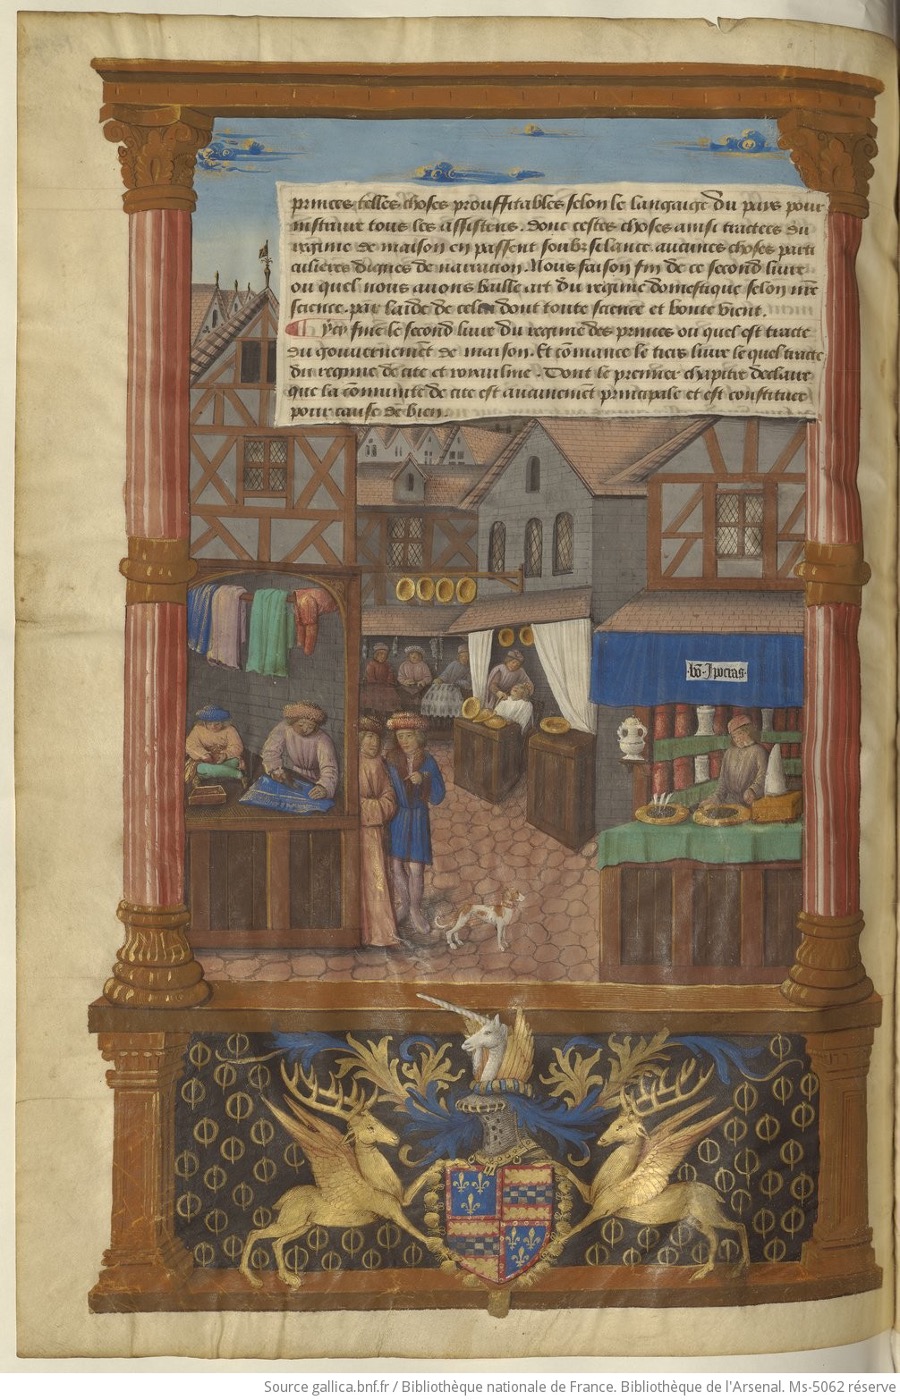 princes telles choses prouffitables selon le langaige du pays pour
instruire tous les assistens. donc cestes choses ainsi tractees du
regime de maison en passent soubz silance aucunes choses parti
culieres dignes de narracion. Nous faison fin de ce second livre
ou quel nous avons baille art du regime domestique selon nre
science. par laide de celui dont toute science et bonte vient.
ycy fine le second livre du regime des princes ou quel est tracte
du gouvernement de maison. Et cõmance le tiers livre le quel tracte
du regime de cite et royaulme. Dont le premier chapitre declaire
que la cõmunite de cite est aucunemẽt principale et est constituee
pour cause de bien.
bõ Ipocras
Source gallica.bnf.fr / Bibliothèque nationale de France. Bibliothèque de l'Arsenal. Ms-5062 réserve